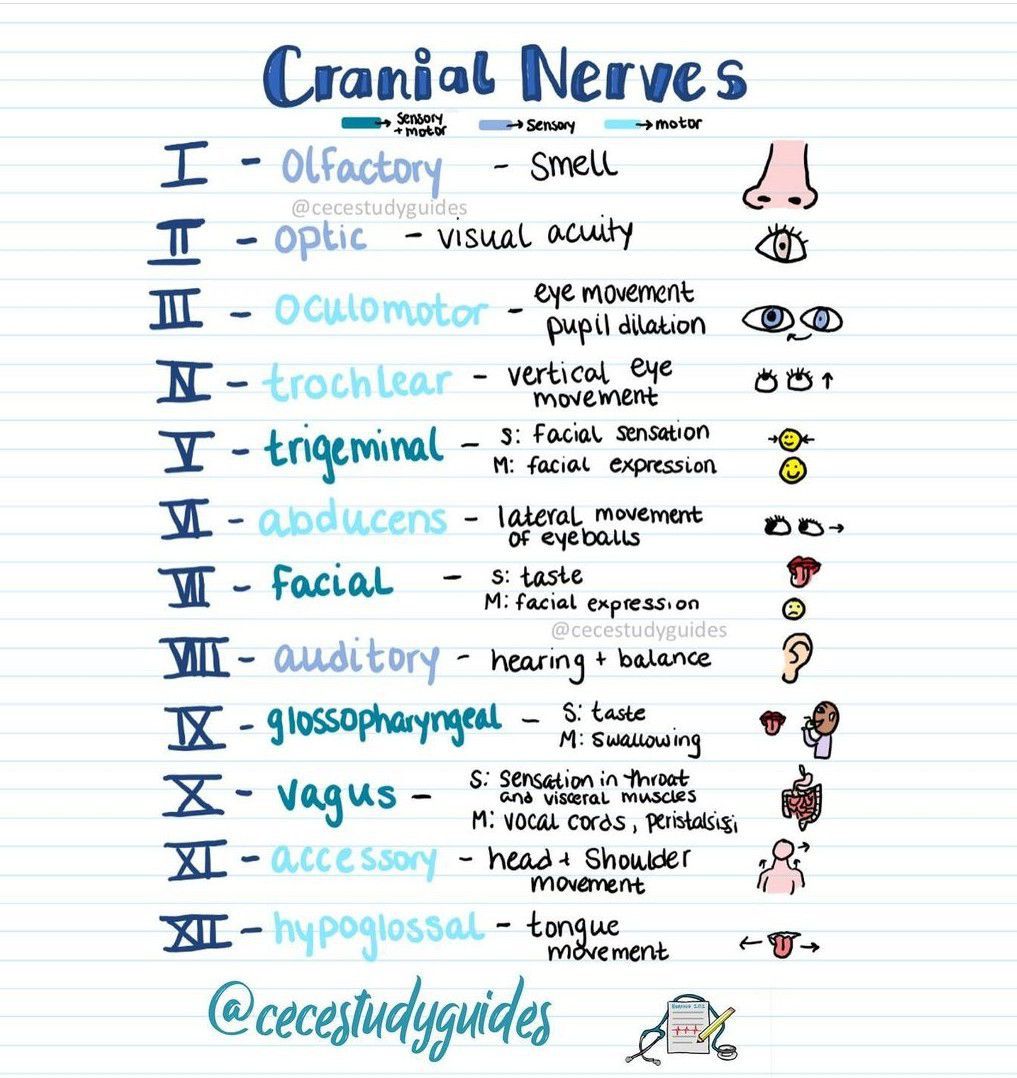 Cranial Nerves
→ Sensory + motor → Sensory → motor
I - Olfactory - Smell
@cecestudyguides
II - optic - visual acuity
III - oculomotor - eye movement
pupil dilation
IV - trochlear - vertical eye
movement
V - trigeminal - S: Facial sensation
M: facial expression
VI - abducens - lateral movement
of eyeballs
VII - facial - S: taste
M: facial expression
@cecestudyguides
VIII - auditory - hearing + balance
IX - glossopharyngeal - S: taste
M: swallowing
X - vagus - S: sensation in throat
and visceral muscles
M: vocal cords, peristalsisi
XI - accessory - head + shoulder
movement
XII - hypoglossal - tongue
movement
@cecestudyguides